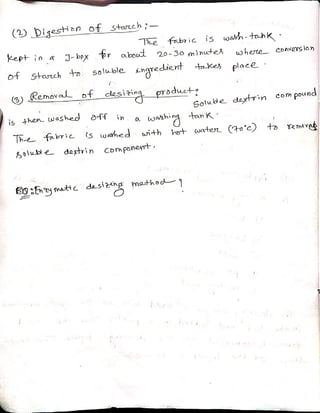 (2) Digestion of starch :-
The fabric is wash-tank.
kept in a J-box for about 20-30 minutes where conversion
of starch to soluble ingredient takes place.
(3) Removal of desizing product:
Soluble dextrin compound
is then washed off in a washing tank.
The fabric is washed with hot water (70°c) to remove
soluble dextrin component.
Enzymatic desizing method ?